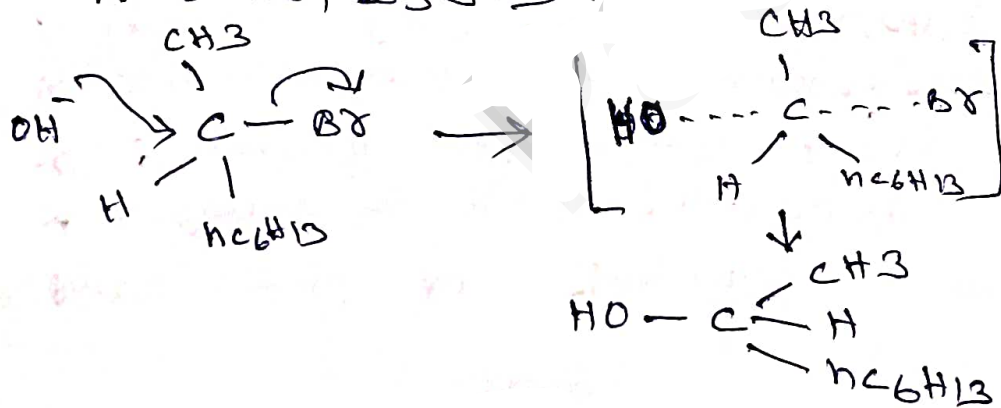 CH3
OH⁻ C — Br
H
nC6H13
CH3
HO ---- C ---- Br
H nC6H13
CH3
HO — C — H
nC6H13